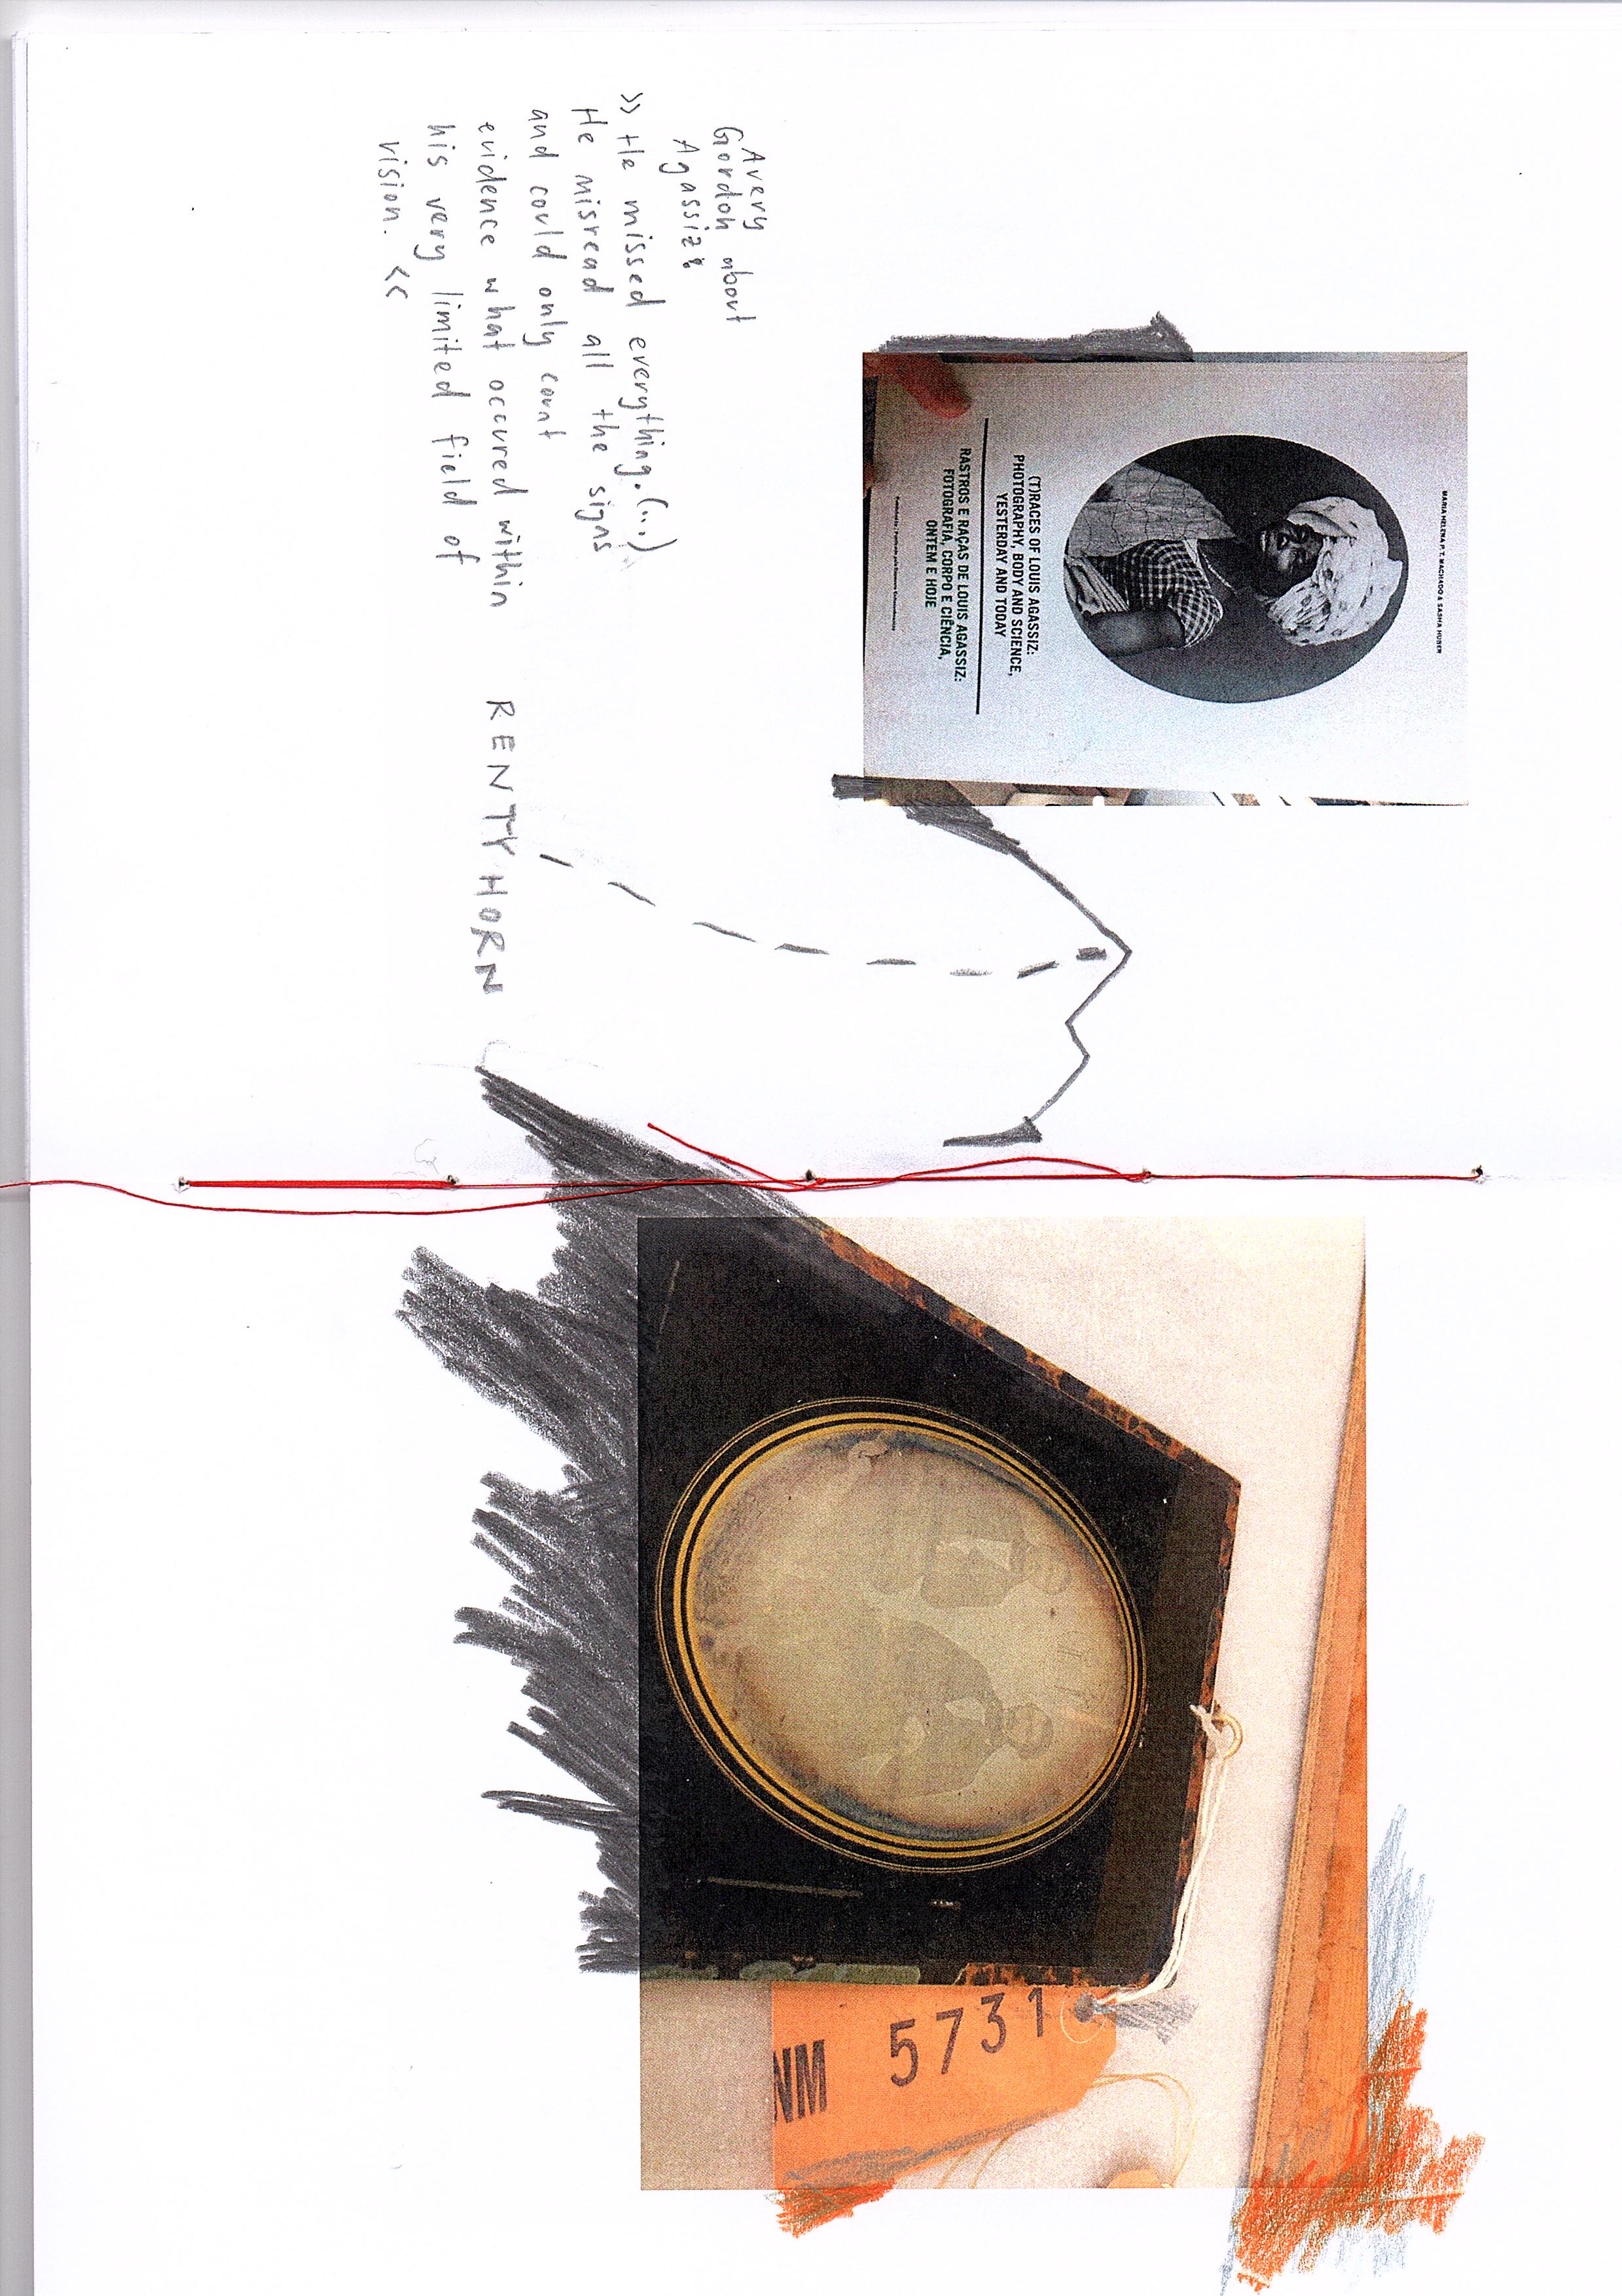 MARIA HELENA P. T. MACHADO & SASHA HUBER
(T)RACES OF LOUIS AGASSIZ:
PHOTOGRAPHY, BODY AND SCIENCE,
YESTERDAY AND TODAY
RASTROS E RAÇAS DE LOUIS AGASSIZ:
FOTOGRAFIA, CORPO E CIÊNCIA,
ONTEM E HOJE
Avery
Gordon about
Agassiz:
>> He missed everything. (...)
He misread all the signs
and could only count
evidence what occured within
his very limited field of
vision. <<
RENTYHORN
NM 5731